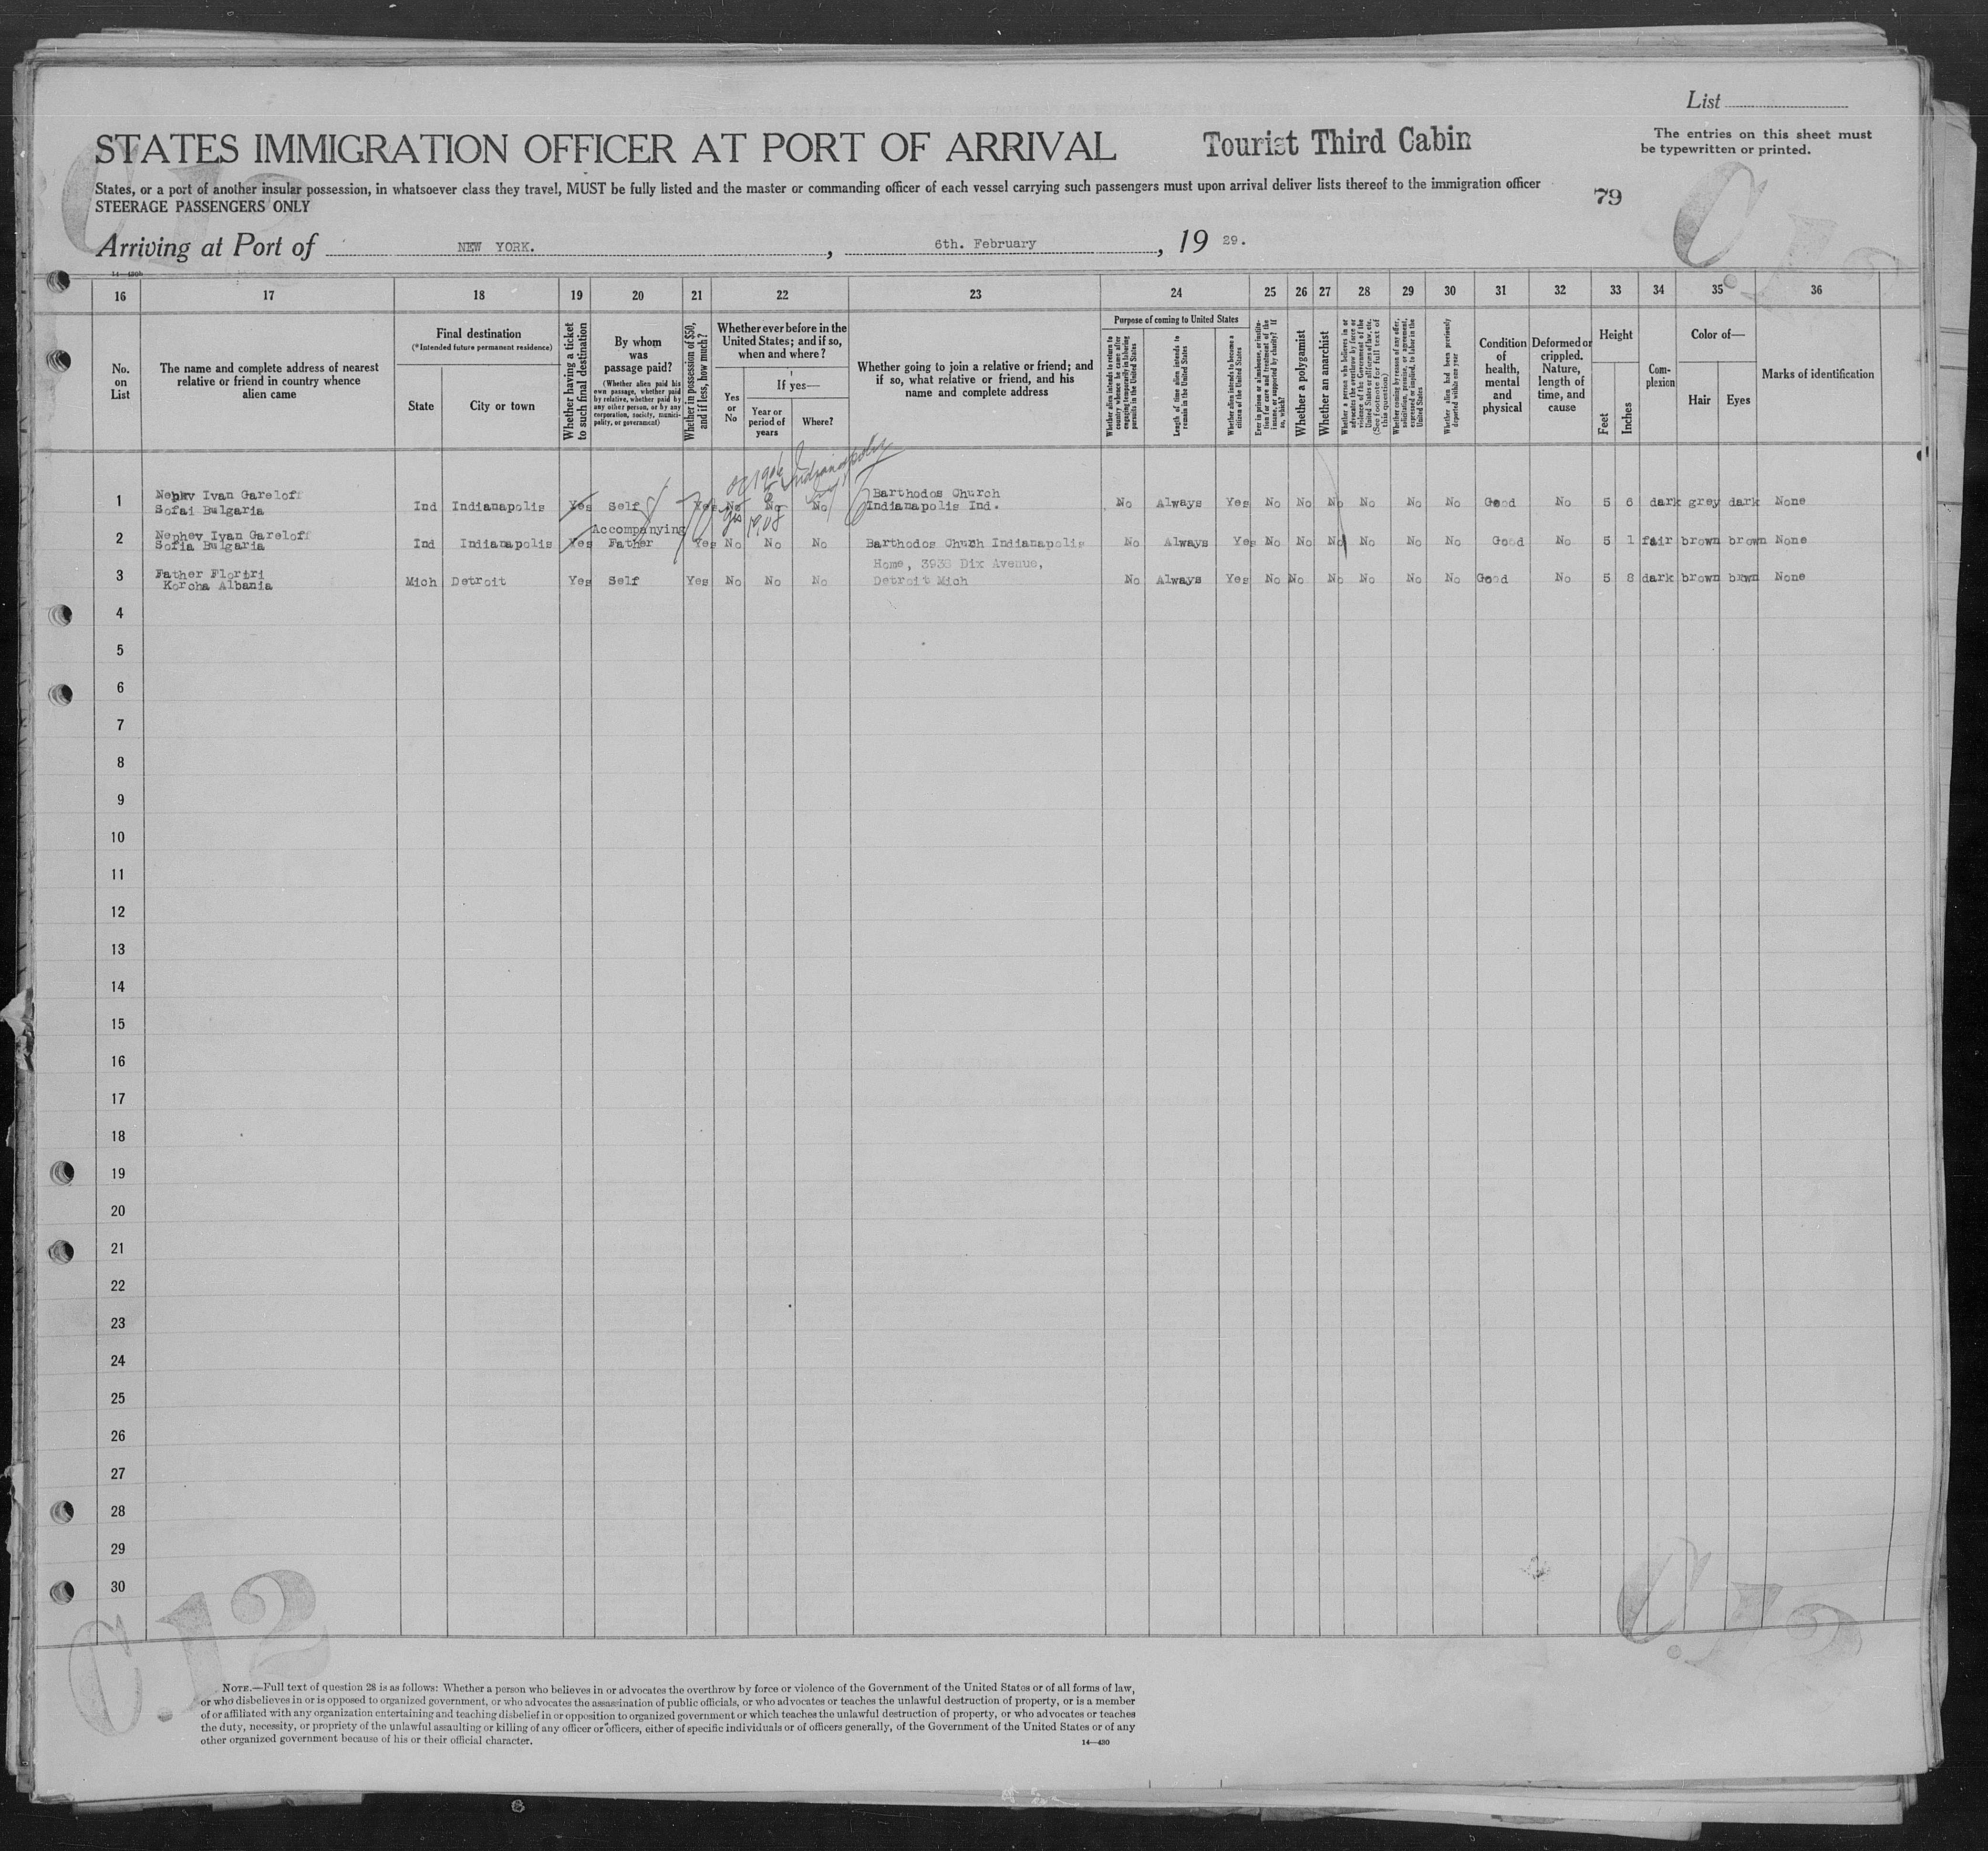 List
STATES IMMIGRATION OFFICER AT PORT OF ARRIVAL
Tourist Third Cabin
The entries on this sheet must
be typewritten or printed.
States, or a port of another insular possession, in whatsoever class they travel, MUST be fully listed and the master or commanding officer of each vessel carrying such passengers must upon arrival deliver lists thereof to the immigration officer
STEERAGE PASSENGERS ONLY
79
Arriving at Port of NEW YORK. , 6th. February , 19 29.
16 17 18 19 20 21 22 23 24 25 26 27 28 29 30 31 32 33 34 35 36
No.
on
List
The name and complete address of nearest
relative or friend in country whence
alien came
Final destination
(*Intended future permanent residence)
State
City or town
Whether having a ticket
to such final destination
By whom
was
passage paid?
(Whether alien paid his
own passage, whether paid
by relative, whether paid by
any other person, or by any
corporation, society, munici-
pality, or government)
Whether in possession of $50,
and if less, how much?
Whether ever before in the
United States; and if so,
when and where?
Yes
or
No
If yes—
Year or
period of
years
Where?
Whether going to join a relative or friend; and
if so, what relative or friend, and his
name and complete address
Purpose of coming to United States
Whether alien intends to return to
country whence he came after
engaging temporarily in laboring
pursuits in the United States
Length of time alien intends to
remain in the United States
Whether alien intends to become a
citizen of the United States
Ever in prison or almshouse, or institu-
tion for care and treatment of the
insane, or supported by charity? If
so, which?
Whether a polygamist
Whether an anarchist
Whether a person who believes in or
advocates the overthrow by force or
violence of the Government of the
United States or all forms of law, etc.
(See footnote for full text of
this question)
Whether coming by reason of any offer,
solicitation, promise, or agreement,
expressed or implied, to labor in the
United States
Whether alien had been previously
deported within one year
Condition
of
health,
mental
and
physical
Deformed or
crippled.
Nature,
length of
time, and
cause
Height
Feet
Inches
Com-
plexion
Color of—
Hair
Eyes
Marks of identification
1906 Indianapolis
1 Nephv Ivan Gareloff
Sofai Bulgaria Ind Indianapolis Yes Self Yes No No No Barthodos Church
Indianapolis Ind. No Always Yes No No No No No No Good No 5 6 dark grey dark None
yes 1908
2 Nephev Ivan Gareloff
Sofia Bulgaria Ind Indianapolis Yes Accompanying
Father Yes No No No Barthodos Chuch Indianapolis No Always Yes No No No No No No Good No 5 1 fair brown brown None
3 Father Floriri
Korcha Albania Mich Detroit Yes Self Yes No No No Home, 3938 Dix Avenue,
Detroit Mich No Always Yes No No No No No No Good No 5 8 dark brown brwn None
4
5
6
7
8
9
10
11
12
13
14
15
16
17
18
19
20
21
22
23
24
25
26
27
28
29
30
C.12
C.12
C.12
C.12
NOTE.—Full text of question 28 is as follows: Whether a person who believes in or advocates the overthrow by force or violence of the Government of the United States or of all forms of law,
or who disbelieves in or is opposed to organized government, or who advocates the assassination of public officials, or who advocates or teaches the unlawful destruction of property, or is a member
of or affiliated with any organization entertaining and teaching disbelief in or opposition to organized government or which teaches the unlawful destruction of property, or who advocates or teaches
the duty, necessity, or propriety of the unlawful assaulting or killing of any officer or officers, either of specific individuals or of officers generally, of the Government of the United States or of any
other organized government because of his or their official character.
14—430